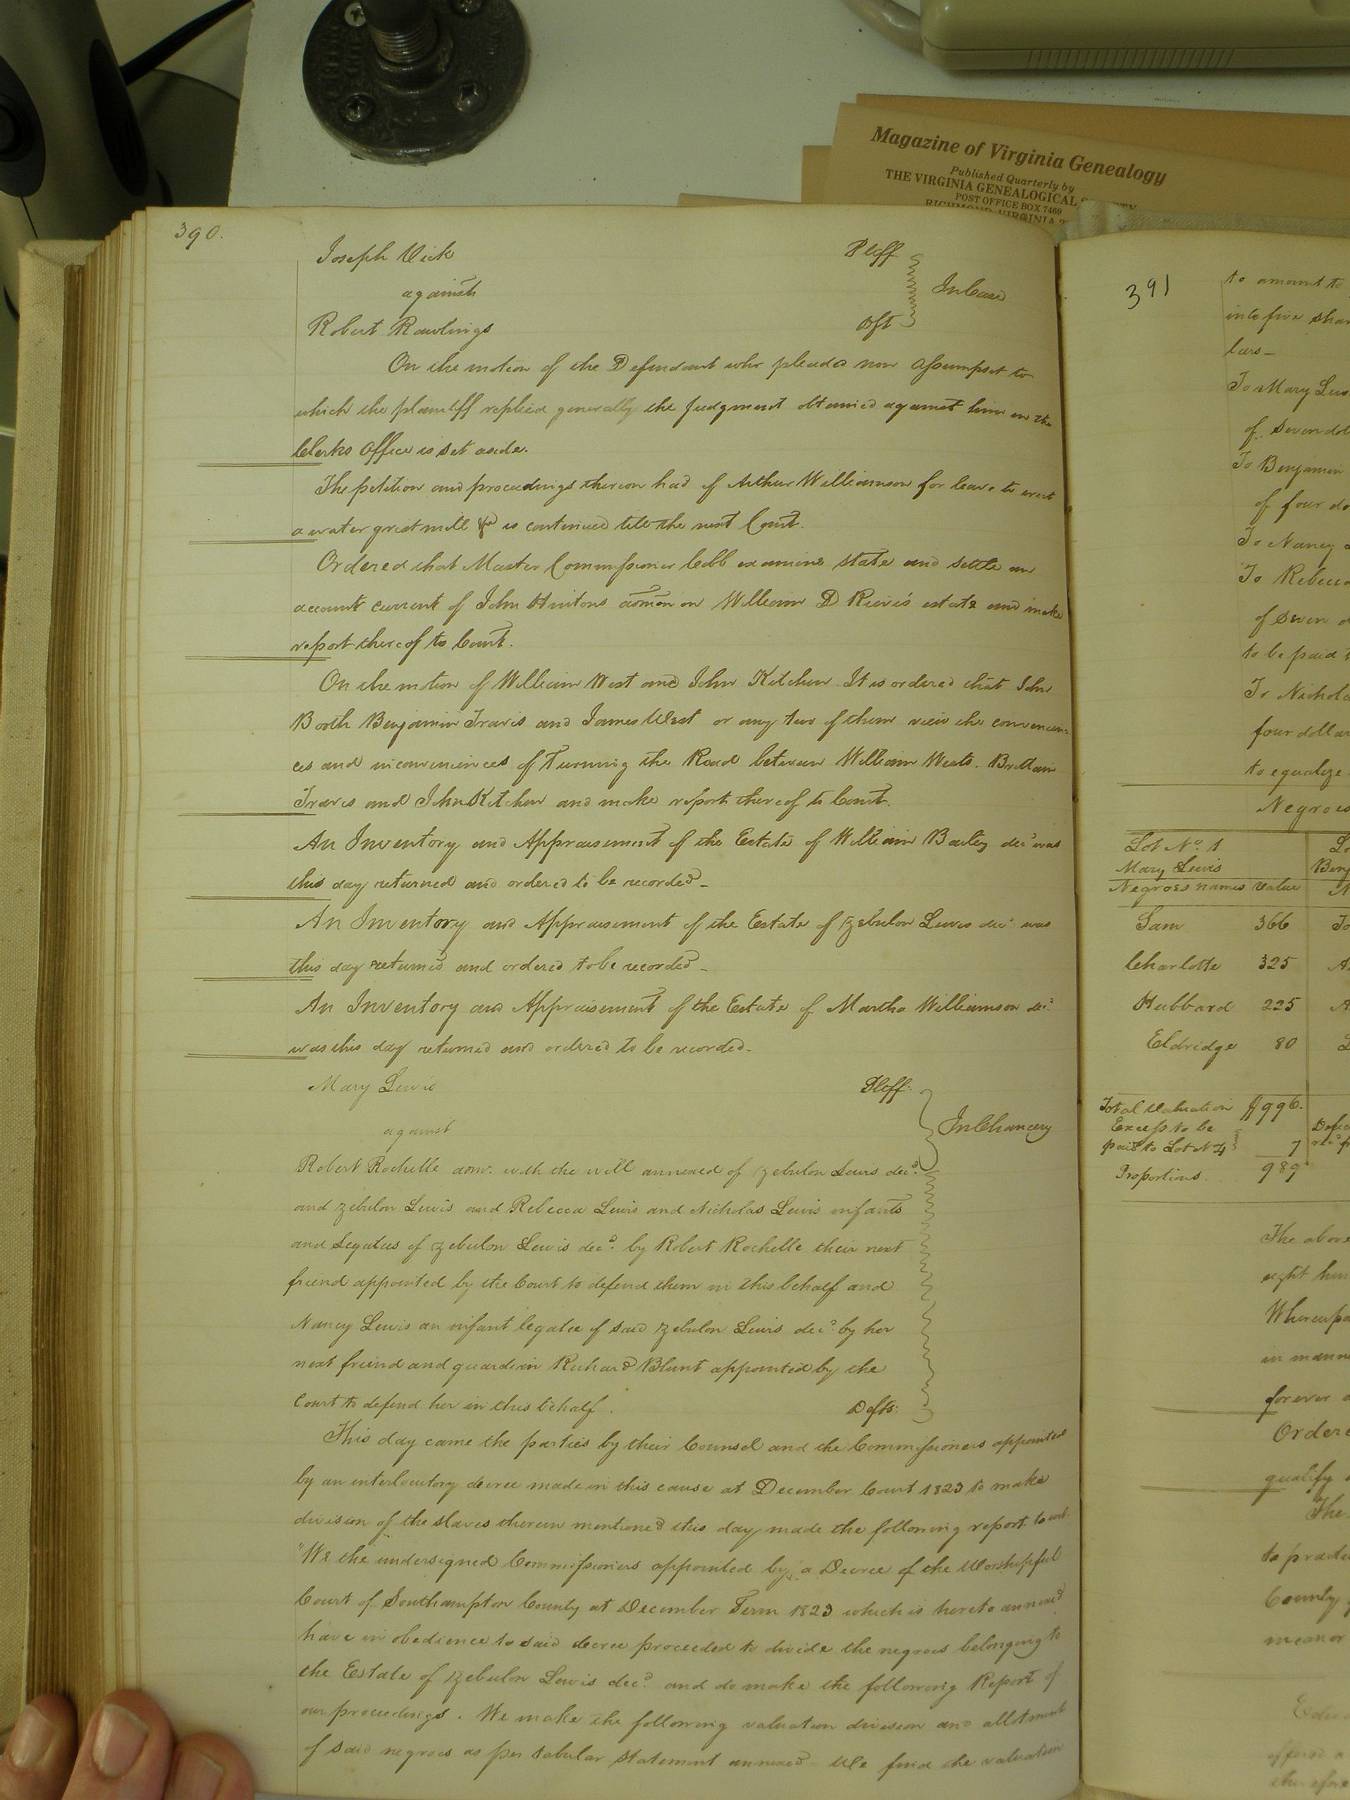 Magazine of Virginia Genealogy
Published Quarterly by
THE VIRGINIA GENEALOGICAL
POST OFFICE BOX 7469
RICHMOND VIRGINIA
390.
Joseph Vick Pltff
against In Case
Robert Rawlings Dft
On the motion of the Defendant who pleads non Assumpsit to
which the plaintiff replied generally the judgment obtained against him in the
Clerks Office is set aside.
The petition and proceedings thereon had of Arthur Williamson for leave to erect
a water grist mill &c is continued till the next Court.
Ordered that Master Commissioner Cobb examine state and settle an
account current of John Huntons admon on William D estate and make
report thereof to Court.
On the motion of William West and John Kitchen It is ordered that John
Booth Benjamin Travis and James West or any two of them view the convenien-
ces and inconveniences of Turning the Road between William Wests. Brittain
Travis and John Kitchen and make report thereof to Court.
An Inventory and Appraisement of the Estate of William Bailey decd was
this day returned and ordered to be recorded_
An Inventory and Appraisement of the Estate of Zebulon Lewis decd was
this day returned and ordered to be recorded_
An Inventory and Appraisement of the Estate of Martha Williamson decd
was this day returned and ordered to be recorded.
Mary Lewis Pltff.
against In Chancery
Robert Rochelle admr. with the will annexed of Zebulon Lewis decd.
and Zebulon Lewis and Rebecca Lewis and Nicholas Lewis infants
and Legatees of Zebulon Lewis decd. by Robert Rochelle their next
friend appointed by the Court to defend them in this behalf and
Nancy Lewis an infant legatee of said Zebulon Lewis decd by her
next friend and guardian Richard Blunt appointed by the
Court to defend her in this behalf. Defts:
This day came the parties by their Counsel and the Commissioners appointed
by an interlocutory decree made in this cause at December Court 1823 to make
division of the slaves therein mentioned this day made the following report to wit
"We the undersigned Commissioners appointed by a Decree of the Worshipful
Court of Southampton County at December Term 1823 which is hereto annexed
have in obedience to said decree proceeded to divide the negroes belonging to
the Estate of Zebulon Lewis decd. and do make the following Report of
our proceedings. We make the following valuation division and allotment
of said negroes as per tabular statement annexed We find the valuation
391
to amount to
into five shar
lars_
To Mary Lew
of Seven dol
To Benjamin
of four do
To Nancy
To Rebecca
of Seven d
to be paid
To Nichola
four dollar
to equalize
Negroes
Lot No. 1
Mary Lewis
Negroes names value
Sam 366
Charlotte 325
Hubbard 225
Eldridge 80
Total valuation $996.
Excess to be
paid to Lot No 4 7
Proportions 989
The above
Whereupo
in mann
forever
Ordere
qualify
The
to practi
County